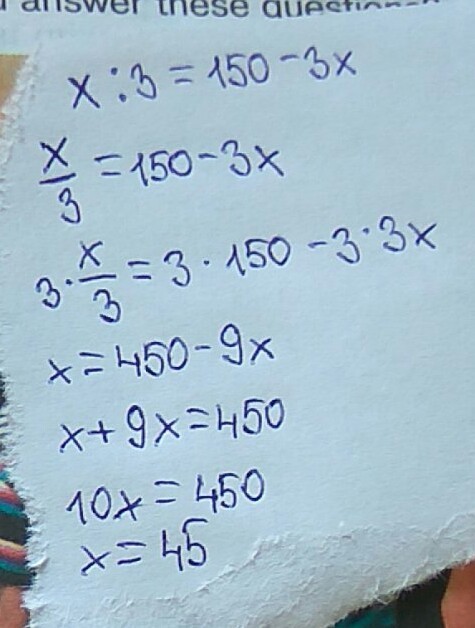 answer these questions
x:3=150-3x
x/3=150-3x
3·x/3=3·150-3·3x
x=450-9x
x+9x=450
10x=450
x=45